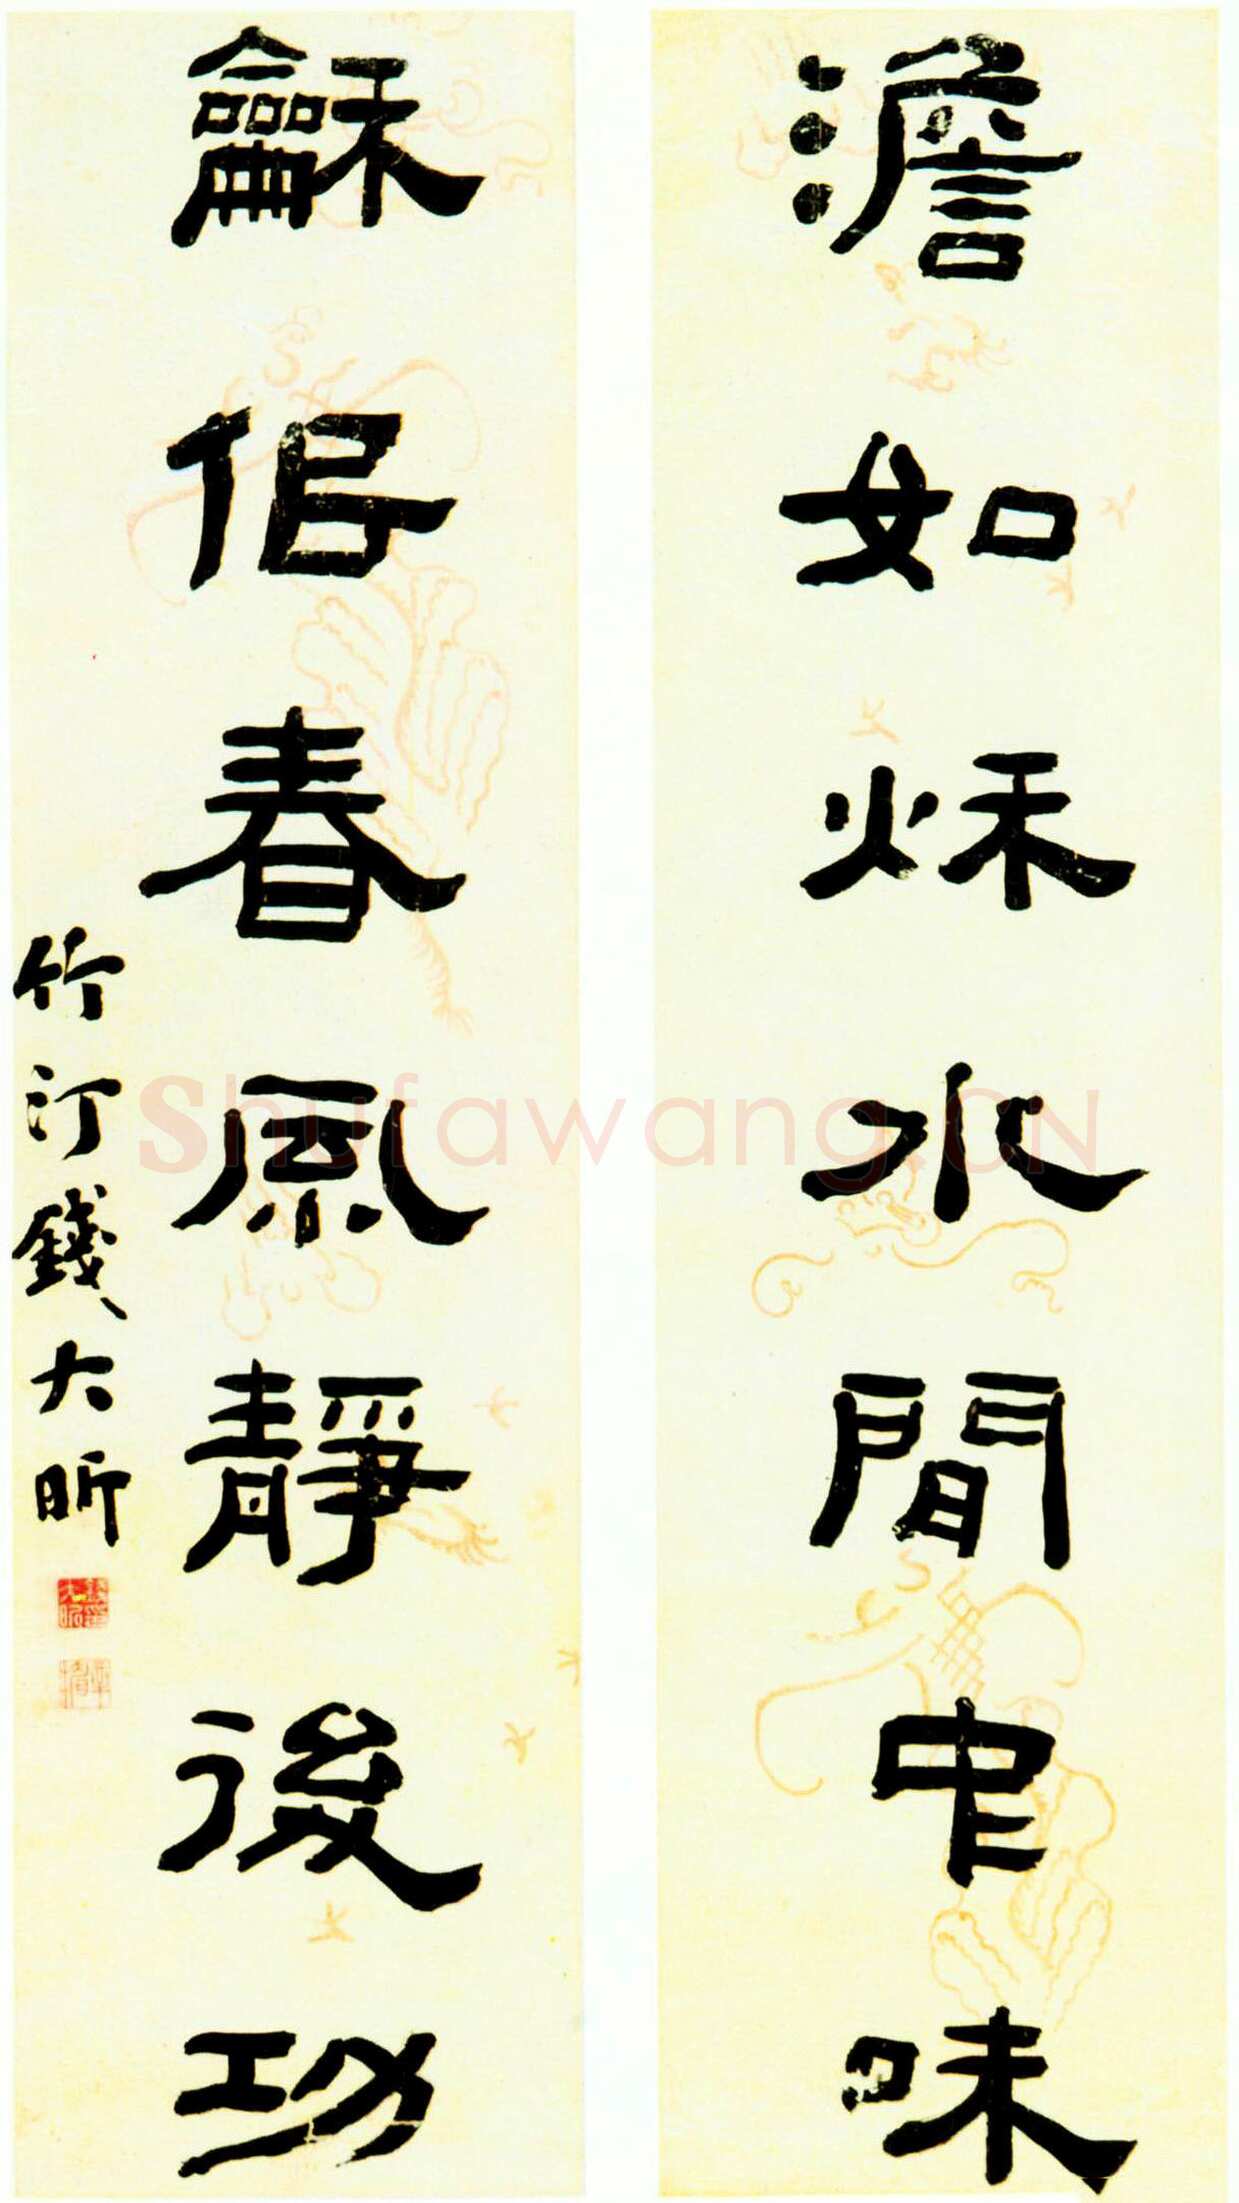 澹如秌水閒中味
龢佀春風靜後功
竹汀錢大昕
Shufawang.CN